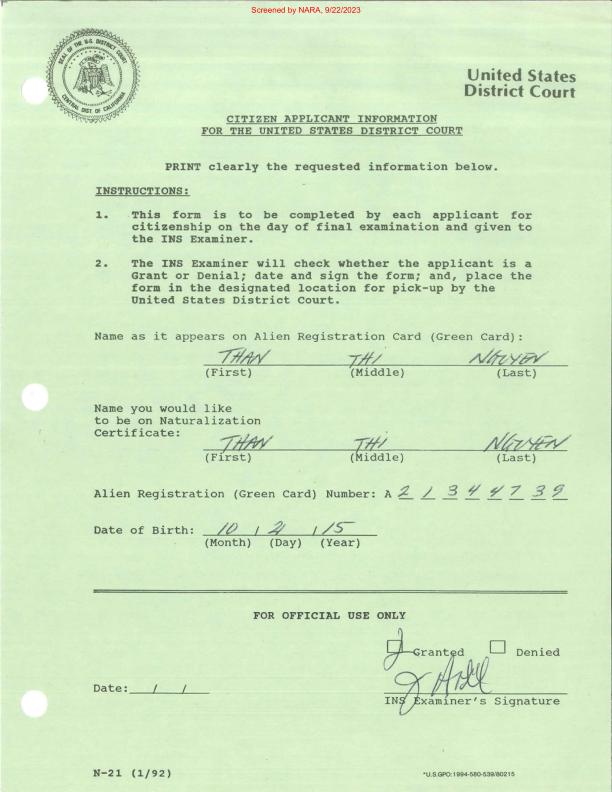 Screened by NARA, 9/22/2023
SEAL OF THE U.S. DISTRICT COURT
CENTRAL DIST OF CALIFORNIA
United States
District Court
CITIZEN APPLICANT INFORMATION
FOR THE UNITED STATES DISTRICT COURT
PRINT clearly the requested information below.
INSTRUCTIONS:
1. This form is to be completed by each applicant for
citizenship on the day of final examination and given to
the INS Examiner.
2. The INS Examiner will check whether the applicant is a
Grant or Denial; date and sign the form; and, place the
form in the designated location for pick-up by the
United States District Court.
Name as it appears on Alien Registration Card (Green Card):
THAN THI NGUYEN
(First) (Middle) (Last)
Name you would like
to be on Naturalization
Certificate:
THAN THI NGUYEN
(First) (Middle) (Last)
Alien Registration (Green Card) Number: A 2 1 3 4 4 7 3 9
Date of Birth: 10 / / 15
(Month) (Day) (Year)
FOR OFFICIAL USE ONLY
Granted Denied
Date: / /
INS Examiner's Signature
N-21 (1/92)
*U.S.GPO:1994-580-539/80215